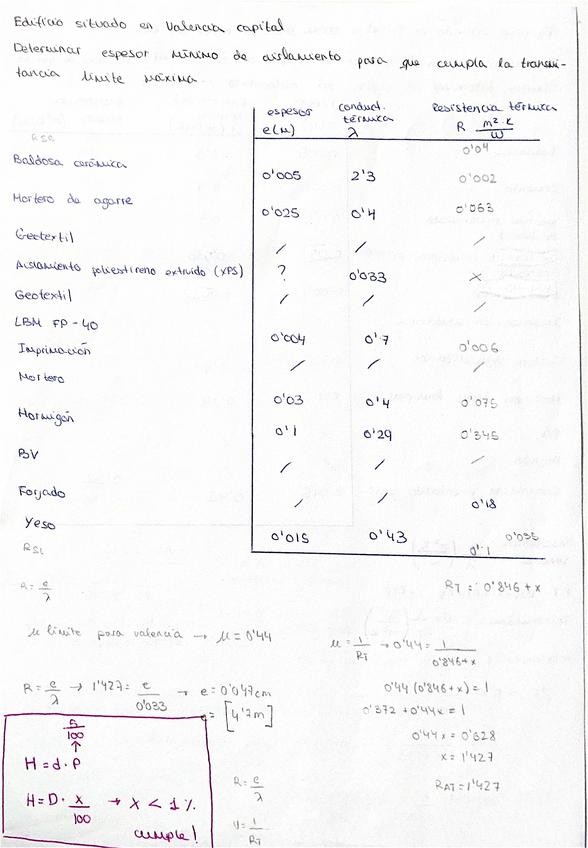 Edificio situado en Valencia capital
Determinar espesor mínimo de aislamiento para que cumpla la transmi-
tancia límite máxima
espesor e(m) conduct. térmica λ Resistencia térmica R m²·K/W
RSE 0'04
Baldosa cerámica 0'005 2'3 0'002
Mortero de agarre 0'025 0'4 0'063
Geotextil / / /
Aislamiento poliestireno extruido (XPS) ? 0'033 x
Geotextil / / /
LBM FP-40 0'004 0'7 0'006
Imprimación / / /
Mortero 0'03 0'4 0'075
Hormigón 0'1 0'29 0'345
BV / / /
Forjado / / 0'18
Yeso 0'015 0'43 0'035
RSi 0'1
R = e/λ
RT = 0'846 + x
μ límite para valencia → μ = 0'44
μ = 1/RT → 0'44 = 1/0'846+x
0'44 (0'846+x) = 1
0'372 + 0'44x = 1
0'44x = 0'628
x = 1'427
RAT = 1'427
R = e/λ → 1'427 = e/0'033 → e = 0'047cm
e = [4'7m]
R = e/λ
U = 1/RT
/100
↑
H = d · P
H = D · x/100 → x < 1%
cumple!